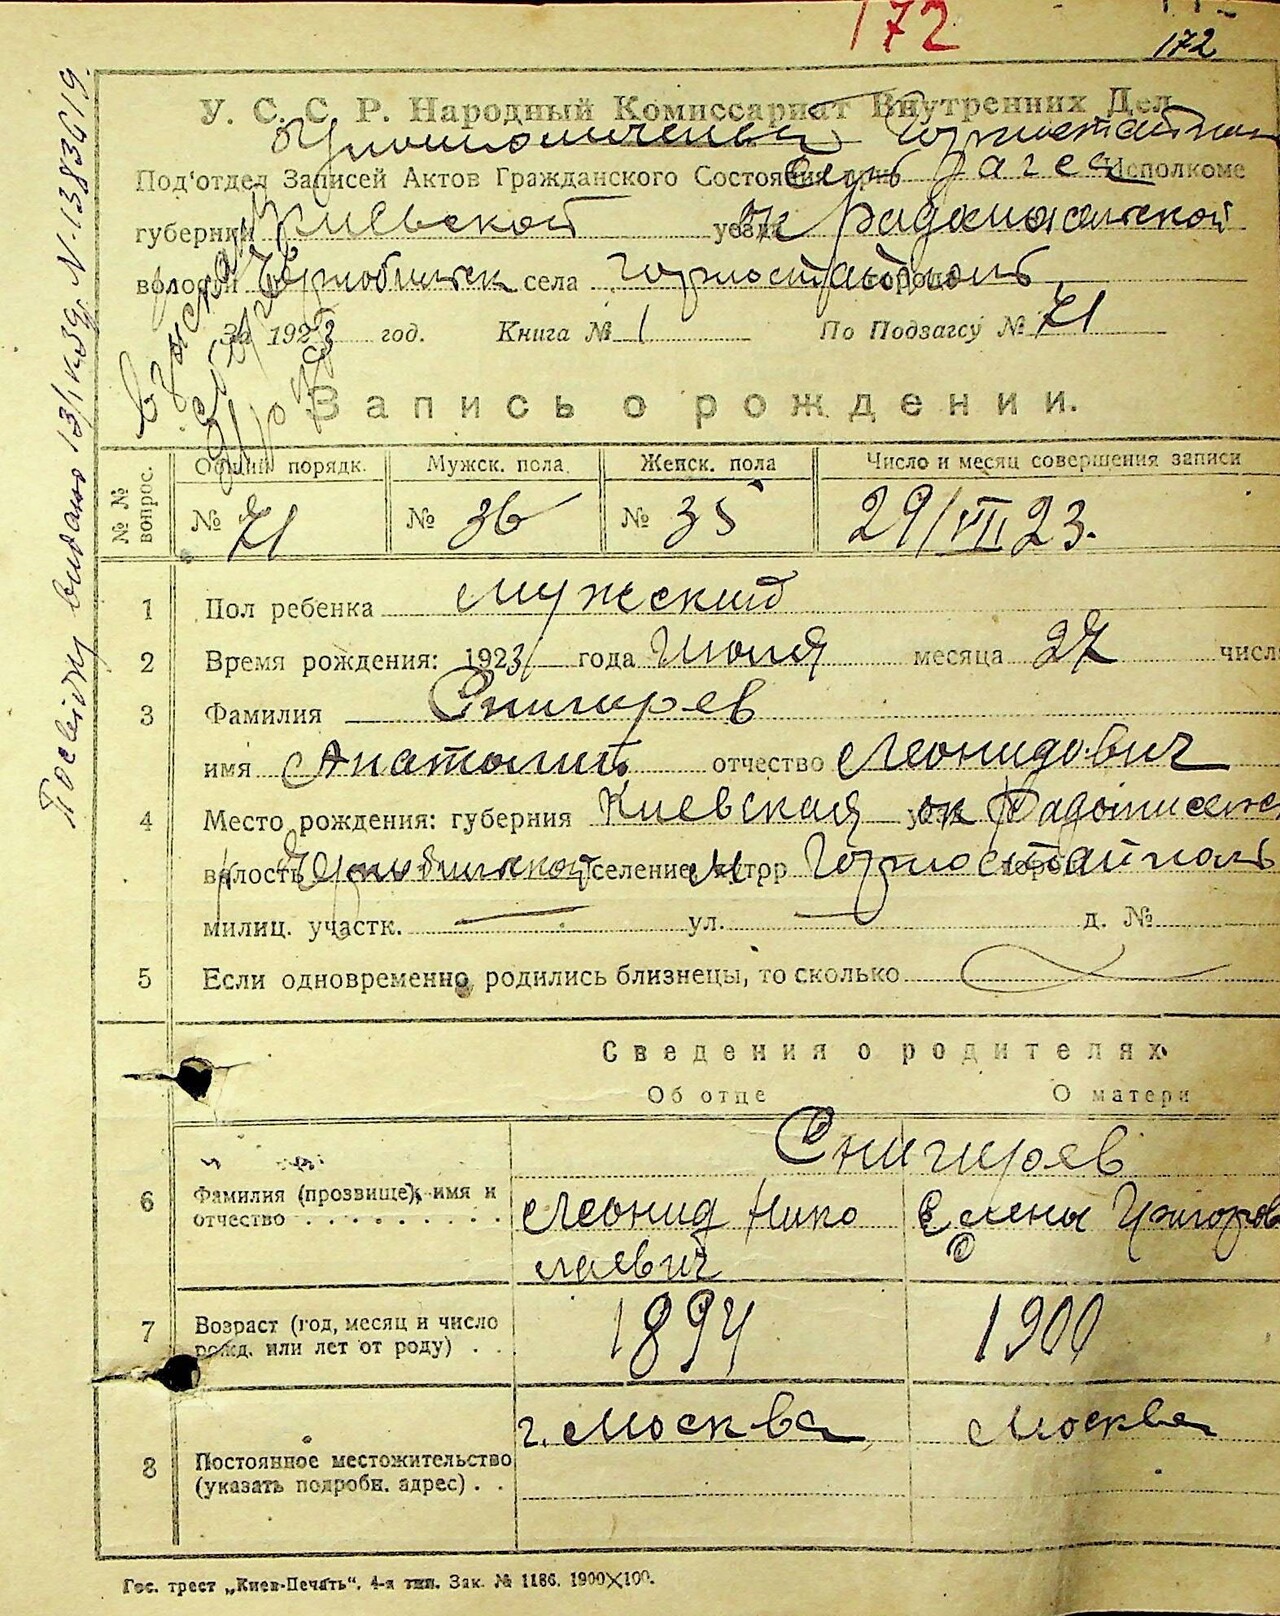 172
172
У. С. С. Р. Народный Комиссариат Внутренних Дел
Под'отдел Записей Актов Гражданского Состояния при Исполкоме
губернии Киевской уезда ок Радомысльской
волости Чернобильск села Горностайполь города
За 1923 год. Книга № 1 По Подзагсу № 71
Запись о рождении.
№ № вопрос.
Общий порядк. Мужск. пола. Женск. пола Число и месяц совершения записи
№ 71 № 36 № 35 29/VII 23.
1 Пол ребенка мужский
2 Время рождения: 1923 года Июля месяца 27 числа
3 Фамилия Снигирев
имя Анатолий отчество Леонидович
4 Место рождения: губерния Киевская ок Радомисльск
волость Чернобильской селение м. Горностайполь
милиц. участк. — ул. — д. №
5 Если одновременно родились близнецы, то сколько
Сведения о родителях
Об отце О матери
Снигирев
6 Фамилия (прозвище), имя и отчество Леонид Николаевич Елены Григоров
7 Возраст (год, месяц и число рожд. или лет от роду) 1894 1900
8 Постоянное местожительство (указать подробн. адрес) г. Москва Москва
Гос. трест „Киев-Печать“. 4-я тип. Зак. № 1186. 1900×100.
Посвідку видано 13/I 39р. N-1383619.